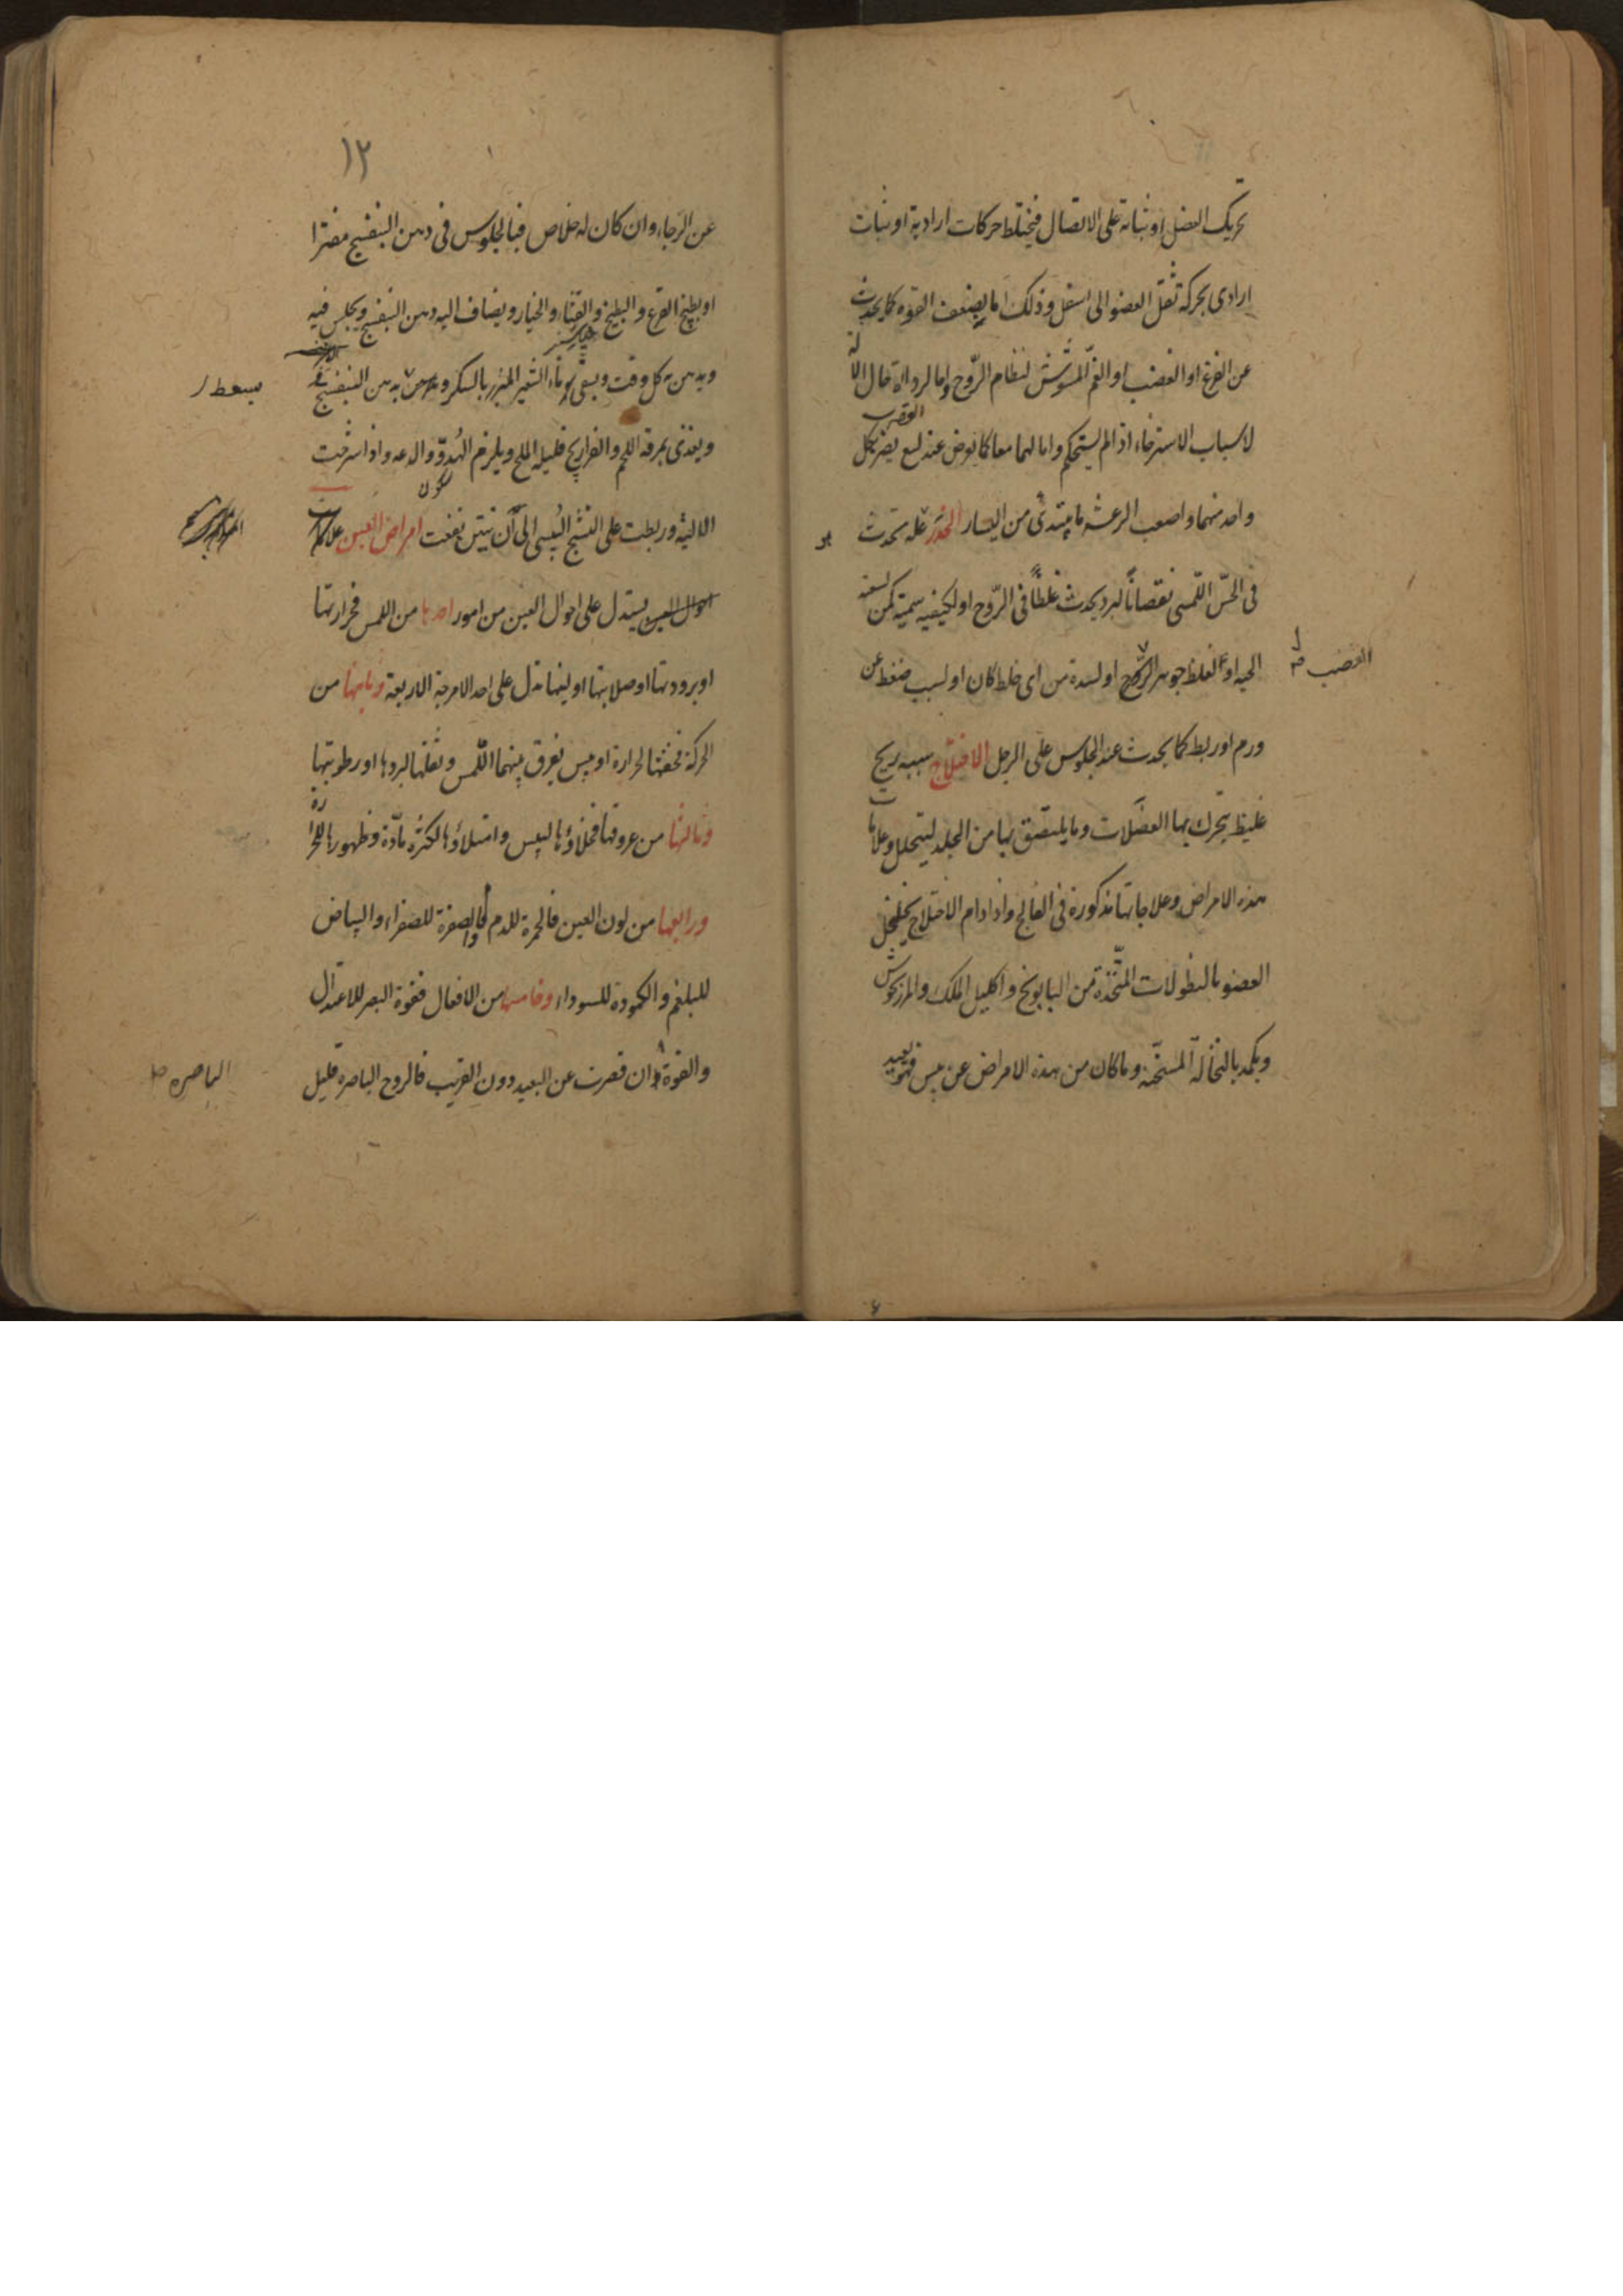 تحريك العضل او ثباته على الاتصال فيختلط حركات ارادية او ثبات
ارادى بحركة ثقل العضو الى اسفل وذلك اما بضعف القوه كما يحدث
عن الفزع او الغضب او الغم المشوش لنظام الروح واما لرداءة حال الالة
لاسباب الاسترخاء اذا لم يستحكم واما لهما معا كما يعرض عند لسع العقرب يضر بكل
واحد منهما واصعب الرعشه ما يبتدئ من اليسار الخدر علة تحدث
فى الحس اللمسى نقصانا لبرد يحدث غلظا فى الروح او لكيفيه سمية كمن لسعته
الحيه او لغلظ جوهر الروح او لسدة من اى خلط كان او لسبب ضغط عن
العصب
ورم او ربط كما يحدث عند الجلوس على الرجل الاختلاج سببه ريح
غليظ يتحرك بها العضلات وما يلتصق بها من الجلد ليتحلل وعلامات
هذه الامراض وعلاجاتها مذكورة فى الفالج واذا دام الاختلاج يخلخل
العضو بالنطولات المتخذة من البابونج واكليل الملك والمرزنجوش
ويكمد بالنخالة المسخنة وما كان من هذه الامراض عن يبس فهو بعيد
١٢
عن الرجاء وان كان له خلاص فبالجلوس فى دهن البنفسج مفترا
او بطبيخ القرع والبطيخ والقثاء والخيار ويضاف اليه دهن البنفسج ويجلس فيه
ويدهن به كل وقت ويسقى ماء الشعير المبزر بالسكر و به من البنفسج
يسعط
ويغذى بمرقة اللحم والفراريج قليلة الملح ويلزم الهدو والدعه واذا شرحت
الالية وربطت على التشنج اليبسى الى ان ينتن نفعت امراض العين علامات
احوال العين يستدل على احوال العين من امور احدها من اللمس فحرارتها
او برودتها او صلابتها او لينها تدل على احد الامزجة الاربعة وثانيها من
الحركة فخفتها لحرارة او يبس يفرق بينهما اللمس وثقلها لبردها او رطوبتها
وثالثها من عروقها فخلاؤها لليبس وامتلاؤها لكثرة مادة وظهورها للحرارة
ورابعها من لون العين فالحمرة للدم والصفرة للصفراء والبياض
للبلغم والكمودة للسوداء وخامسها من الافعال فقوة البصر للاعتدال
والقوة وان قصرت عن البعيد دون القريب فالروح الباصره قليل
الباصره